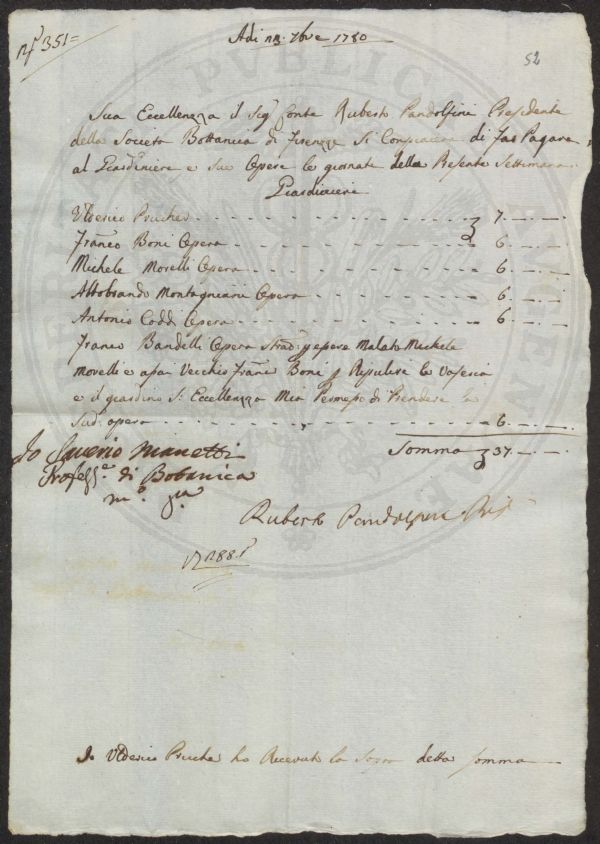 N.º 351=
Adi 23. 7bre 1780
52
Sua Eccellenza il Sig. Conte Ruberto Pandolfini Presidente
della Societa Bottanica di Firenze Si Compiacera di far Pagare
al Giardiniere e Sue Opere le giornate della Presente Settimana
Giardinieri
Ulderico Prucher 7
Franco Boni Opera 6
Michele Morelli Opera 6
Aldobrando Montagniani Opera 6
Antonio Coddi Opera 6
Franco Bandelli Opera strad: p essere Malato Michele
Morelli e Vecchio Franco Boni p Ripulire la Vaseria
e il giardino S: Eccellenza Mia Permesso di Prendere la
Sud: opera 6
Somma 37
Io Saverio Manetti
Profess.e di Botanica
m.o p.a
Ruberto Pandolfini Pres
Io Ulderico Prucher ho Ricevuto la Sopra detta Somma